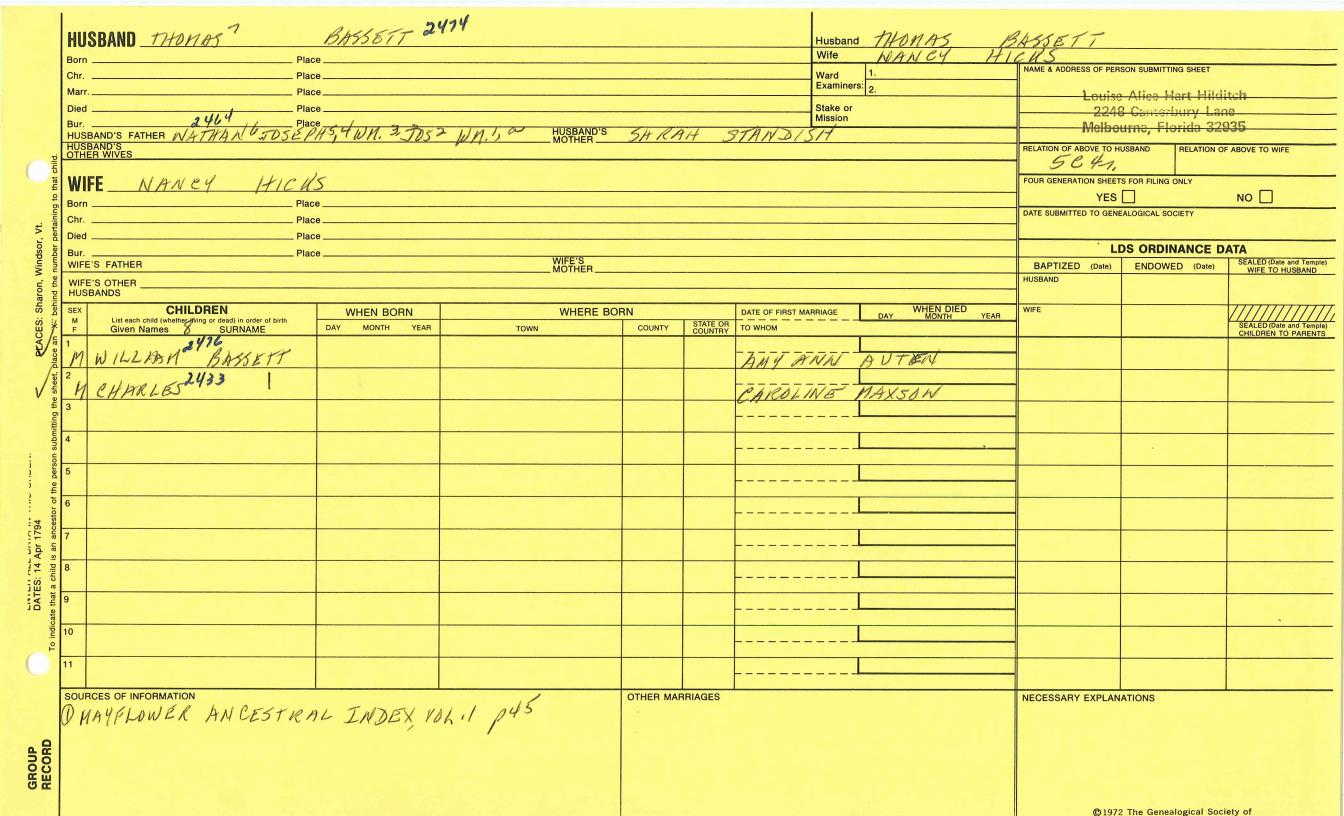 HUSBAND THOMAS 7 BASSETT 2474
Born Place
Chr. Place
Marr. Place
Died Place
Bur. Place
2464
HUSBAND'S FATHER NATHAN 6 JOSEPH 5, 4 WM. 3 JOS 2 WM. 1, HUSBAND'S MOTHER SARAH STANDISH
HUSBAND'S OTHER WIVES
WIFE NANCY HICKS
Born Place
Chr. Place
Died Place
Bur. Place
WIFE'S FATHER WIFE'S MOTHER
WIFE'S OTHER HUSBANDS
Husband THOMAS BASSETT
Wife NANCY HICKS
Ward Examiners: 1.
2.
Stake or Mission
NAME & ADDRESS OF PERSON SUBMITTING SHEET
Louise Alice Hart Hilditch
2248 Canterbury Lane
Melbourne, Florida 32935
RELATION OF ABOVE TO HUSBAND RELATION OF ABOVE TO WIFE
5C4r.
FOUR GENERATION SHEETS FOR FILING ONLY
YES NO
DATE SUBMITTED TO GENEALOGICAL SOCIETY
LDS ORDINANCE DATA
BAPTIZED (Date) ENDOWED (Date) SEALED (Date and Temple) WIFE TO HUSBAND
HUSBAND
WIFE
SEALED (Date and Temple) CHILDREN TO PARENTS
SEX M F
CHILDREN
List each child (whether living or dead) in order of birth
Given Names 8 SURNAME
WHEN BORN
DAY MONTH YEAR
WHERE BORN
TOWN COUNTY STATE OR COUNTRY
DATE OF FIRST MARRIAGE
TO WHOM
WHEN DIED
DAY MONTH YEAR
1 M WILLIAM 2476 BASSETT AMY ANN AUTEN
2 M CHARLES 2433 | CAROLINE MAXSON
3
4
5
6
7
8
9
10
11
SOURCES OF INFORMATION
① MAYFLOWER ANCESTRAL INDEX, VOL. 1 p45
OTHER MARRIAGES
NECESSARY EXPLANATIONS
©1972 The Genealogical Society of
PLACES: Sharon, Windsor, Vt.
DATES: 14 Apr 1794
To indicate that a child is an ancestor of the person submitting the sheet, place an X behind the number pertaining to that child.
GROUP RECORD